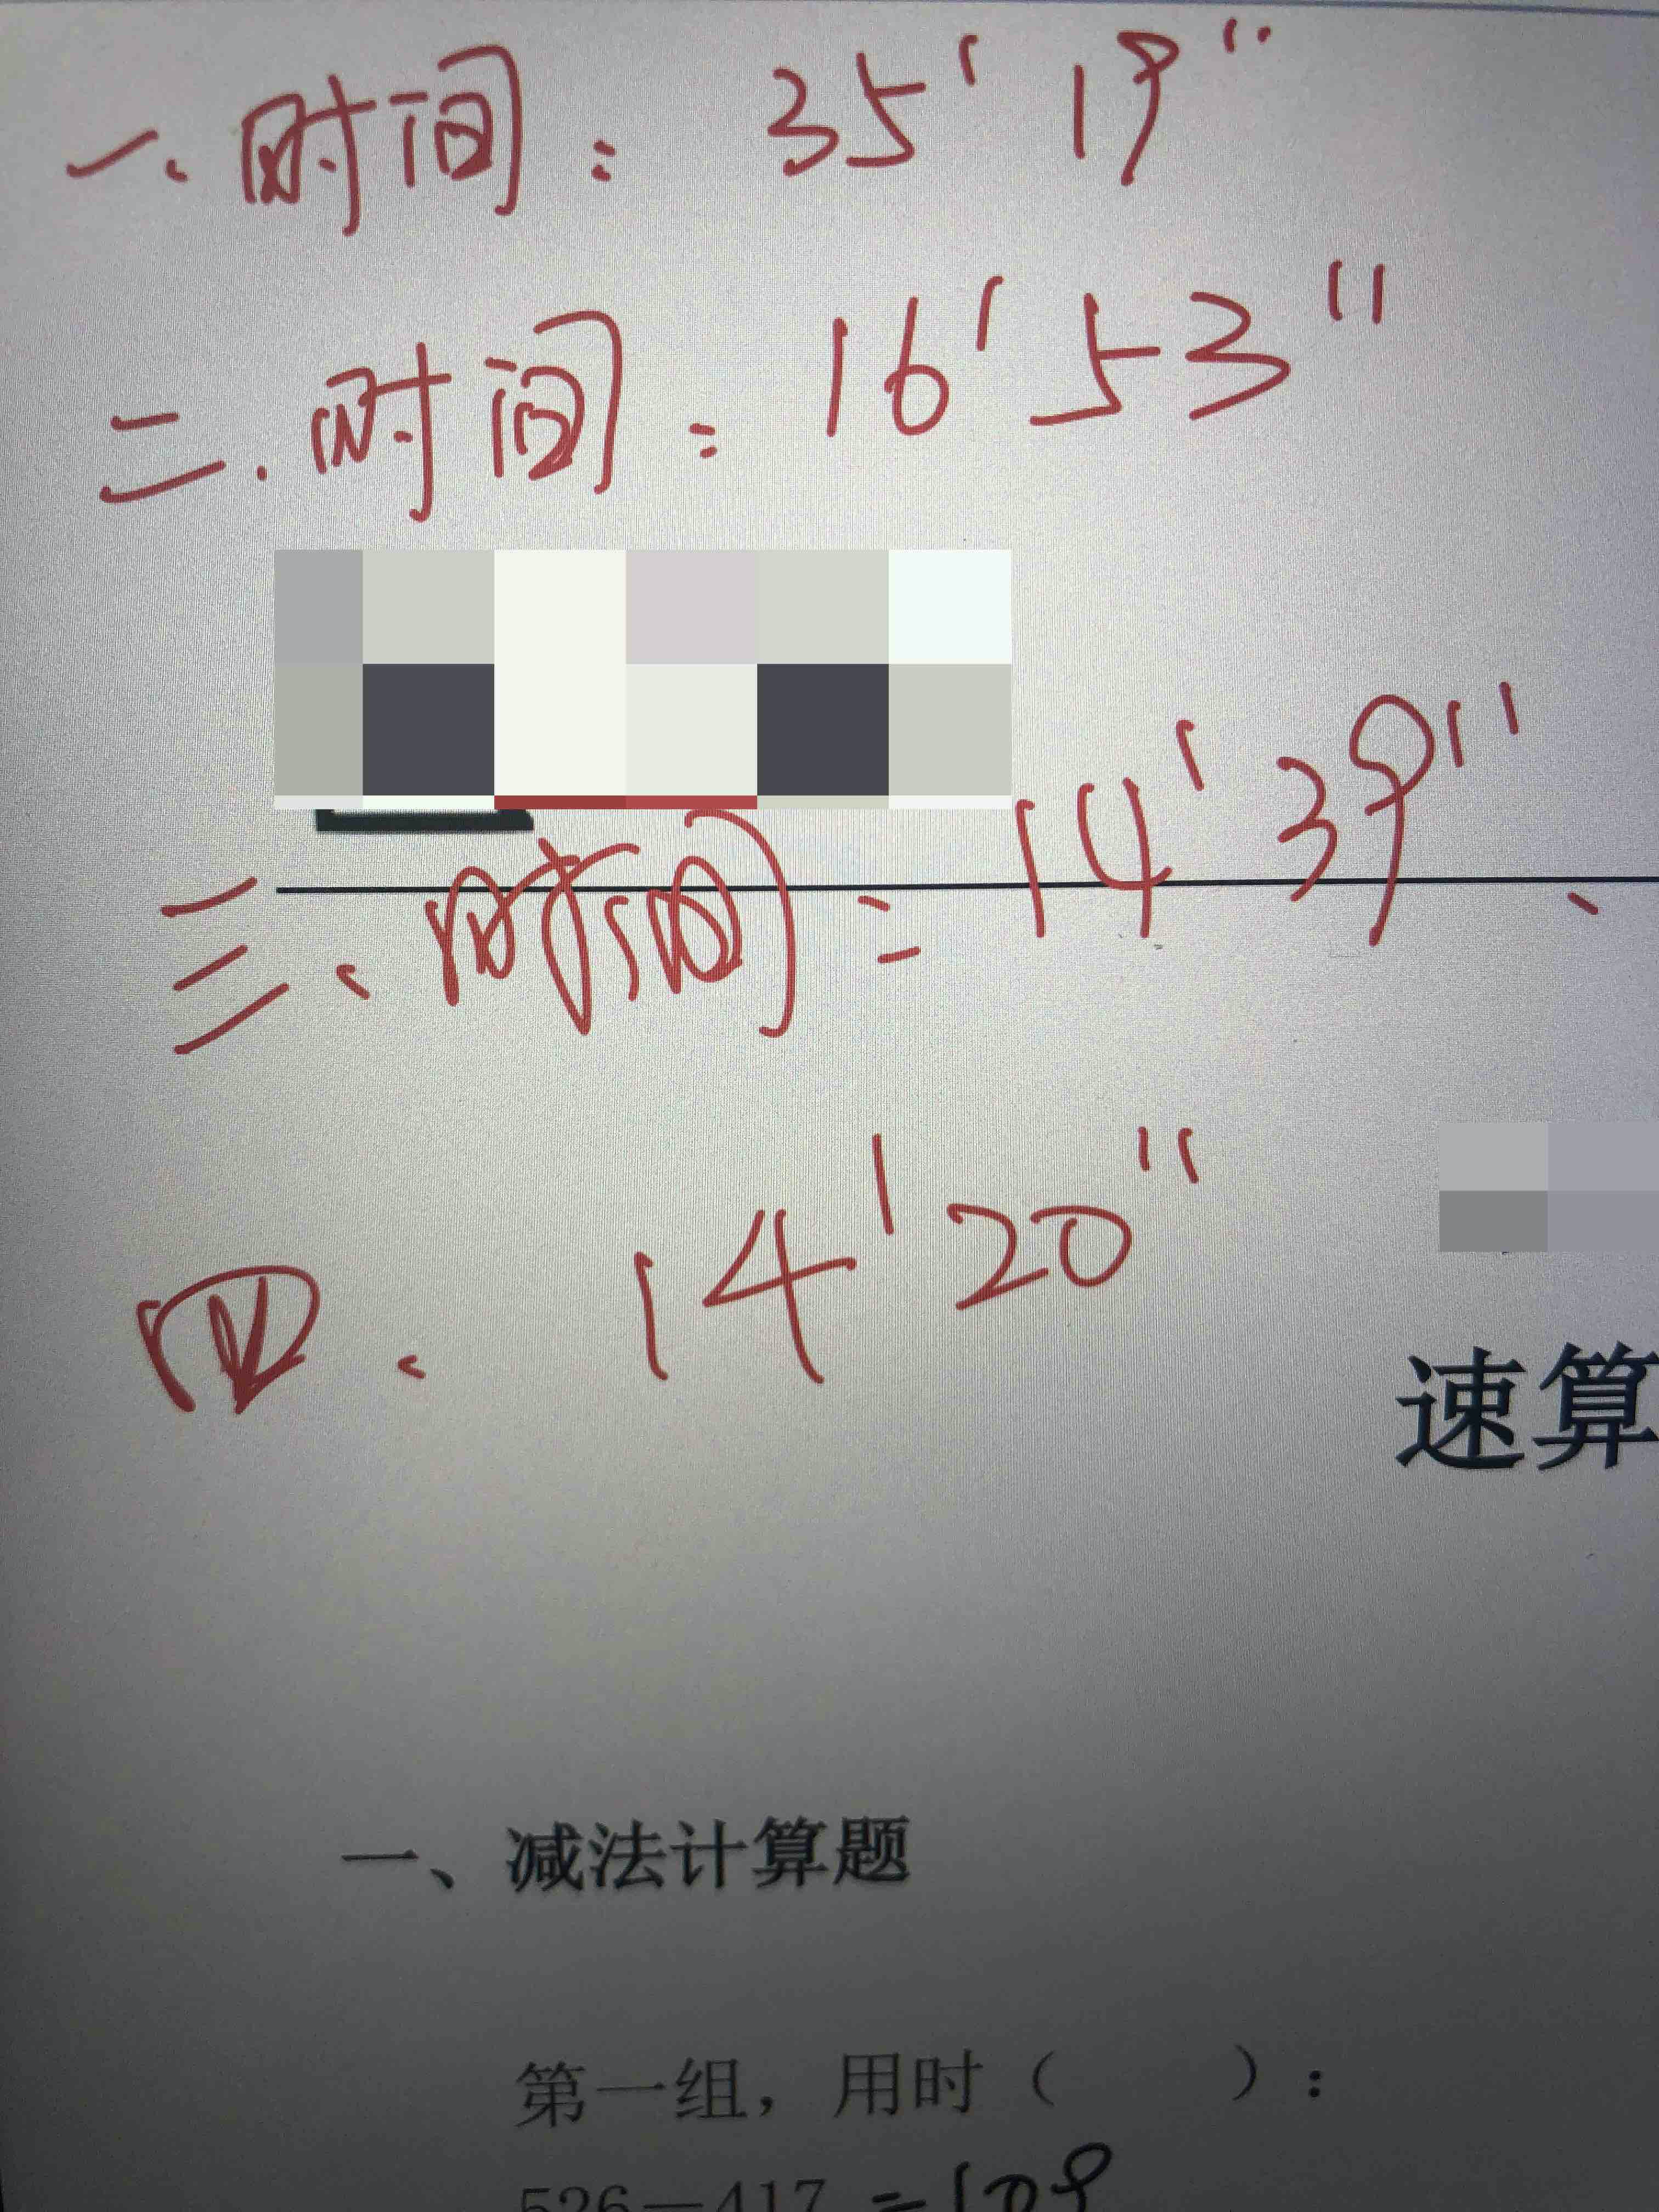 一、时间：35'19"
二.时间：16'53"
三、时间：14'39"、
四、14'20"
速算
一、减法计算题
第一组，用时（ ）：
526－417=109